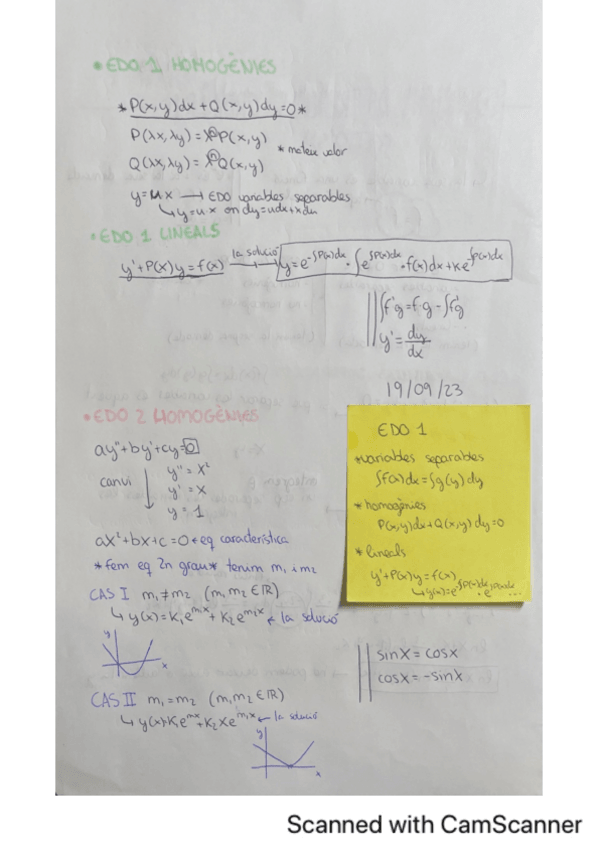 • EDO 1 HOMOGÈNIES
* P(x,y)dx + Q(x,y)dy = 0 *
P(λx, λy) = λⁿP(x,y)
Q(λx, λy) = λⁿQ(x,y)
* mateix valor
y = u x → EDO variables separables
↳ y = u·x on dy = udx + xdu
• EDO 1 LINEALS
y' + P(x)y = f(x) la solució → y = e^-∫P(x)dx · ∫e^∫P(x)dx · f(x)dx + Ke^∫P(x)dx
∫f'g = f·g - ∫fg'
y' = dy/dx
19/09/23
• EDO 2 HOMOGÈNIES
ay'' + by' + cy = 0
canvi
y'' = x²
y' = x
y = 1
ax² + bx + c = 0 ← eq característica
* fem eq 2n grau * tenim m₁ i m₂
CAS I m₁ ≠ m₂ (m₁, m₂ ∈ ℝ)
↳ y(x) = K₁e^m₁x + K₂e^m₂x ← la solució
y
x
CAS II m₁ = m₂ (m₁, m₂ ∈ ℝ)
↳ y(x) = K₁e^m₁x + K₂xe^m₁x ← la solució
y
x
EDO 1
* variables separables
∫f(x)dx = ∫g(y)dy
* homogènies
P(x,y)dx + Q(x,y)dy = 0
* lineals
y' + P(x)y = f(x)
↳ y(x) = e^-∫P(x)dx · e^∫P(x)dx ...
sinx = cosx
cosx = -sinx
Scanned with CamScanner